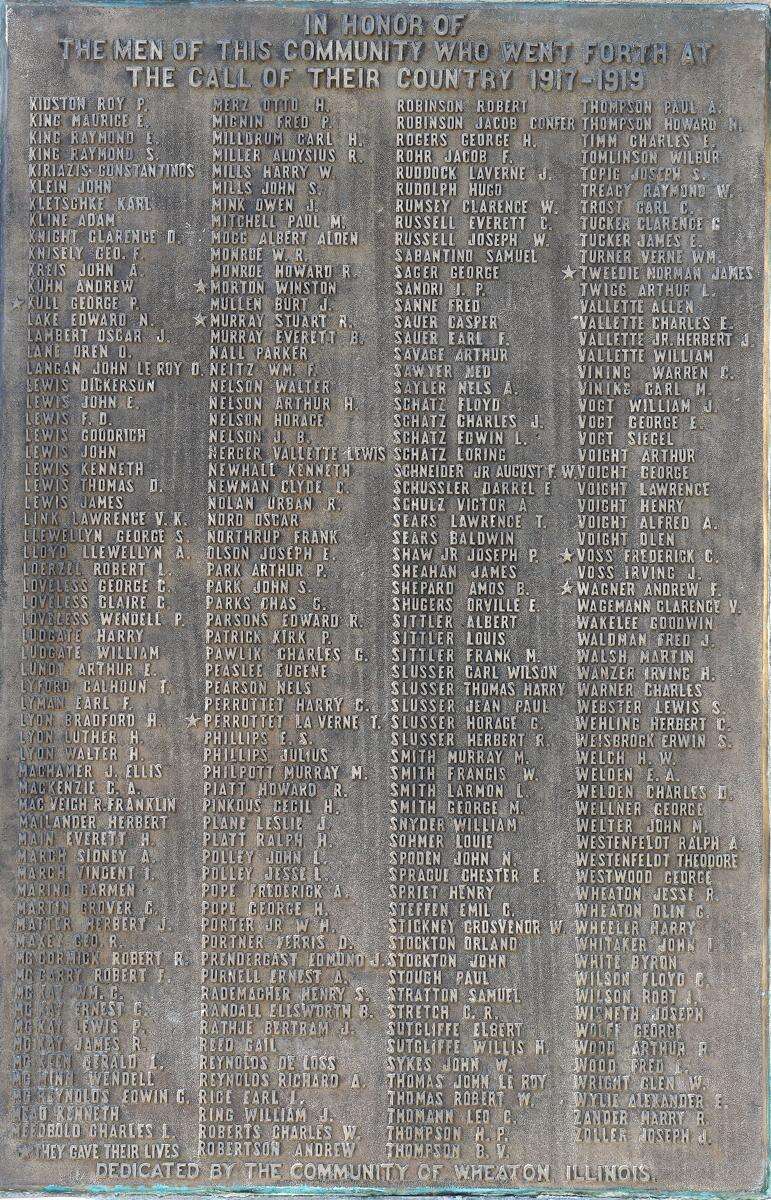 IN HONOR OF
THE MEN OF THIS COMMUNITY WHO WENT FORTH AT
THE CALL OF THEIR COUNTRY 1917-1919
KIDSTON ROY P.
KING MAURICE E.
KING RAYMOND E.
KING RAYMOND S.
KIRIAZIS CONSTANTINOS
KLEIN JOHN
KLETSCHKE KARL
KLINE ADAM
KNIGHT CLARENCE D.
KNISELY GEO. F.
KREIS JOHN A.
KUHN ANDREW
★KULL GEORGE P.
LAKE EDWARD N.
LAMBERT OSCAR J.
LANE OREN O.
LANGAN JOHN LE ROY O.
LEWIS DICKERSON
LEWIS JOHN E.
LEWIS F. D.
LEWIS GOODRICH
LEWIS JOHN
LEWIS KENNETH
LEWIS THOMAS D.
LEWIS JAMES
LINK LAWRENCE V. K.
LLEWELLYN GEORGE S.
LLOYD LLEWELLYN A.
LOERZEL ROBERT L.
LOVELESS GEORGE C.
LOVELESS CLAIRE C.
LOVELESS WENDELL P.
LUDGATE HARRY
LUDGATE WILLIAM
LUNDY ARTHUR E.
LYFORD CALHOUN T.
LYMAN EARL F.
LYON BRADFORD H.
LYON LUTHER H.
LYON WALTER H.
MACHAMER J. ELLIS
MACKENZIE C. A.
MAC VEIGH R. FRANKLIN
MAILANDER HERBERT
MAIN EVERETT H.
MARCH SIDNEY A.
MARCH VINCENT I.
MARINO CARMEN
MARTIN GROVER C.
MATTER HERBERT J.
MAXEY GEO. R.
MC CORMICK ROBERT R.
MC GARRY ROBERT F.
MC KAY WM. C.
MC KAY ERNEST C.
MC KAY LEWIS P.
MC KAY JAMES R.
GERALD L.
WENDELL
MC REYNOLDS EDWIN C.
MEAD KENNETH
NEEDBOLD CHARLES L.
★THEY GAVE THEIR LIVES
MERZ OTTO H.
MIGNIN FRED P.
MILLDRUM CARL H.
MILLER ALOYSIUS R.
MILLS HARRY W.
MILLS JOHN S.
MINK OWEN J.
MITCHELL PAUL M.
MOGG ALBERT ALDEN
MONROE W. R.
MONROE HOWARD R.
★MORTON WINSTON
MULLEN BURT J.
★MURRAY STUART R.
MURRAY EVERETT B.
NALL PARKER
NEITZ WM. F.
NELSON WALTER
NELSON ARTHUR H.
NELSON HORACE
NELSON J. B.
NERGER VALLETTE LEWIS
NEWHALL KENNETH
NEWMAN CLYDE C.
NOLAN URBAN R.
NORD OSCAR
NORTHRUP FRANK
OLSON JOSEPH E.
PARK ARTHUR P.
PARK JOHN S.
PARKS CHAS C.
PARSONS EDWARD R.
PATRICK KIRK P.
PAWLIK CHARLES G.
PEASLEE EUGENE
PEARSON NELS
PERROTTET HARRY C.
★PERROTTET LA VERNE T.
PHILLIPS E. S.
PHILLIPS JULIUS
PHILPOTT MURRAY M.
PIATT HOWARD R.
PINKOUS CECIL H.
PLANE LESLIE J.
PLATT RALPH H.
POLLEY JOHN L.
POLLEY JESSE L.
POPE FREDERICK A.
POPE GEORGE H.
PORTER JR. W. H.
PORTNER FERRIS D.
PRENDERGAST EDMUND J.
PURNELL ERNEST A.
RADEMACHER HENRY S.
RANDALL ELLSWORTH B.
RATHJE BERTRAM J.
REED GAIL
REYNOLDS DE LOSS
REYNOLDS RICHARD A.
RICE EARL J.
RING WILLIAM J.
ROBERTS CHARLES W.
ROBERTSON ANDREW
ROBINSON ROBERT
ROBINSON JACOB CONFER
ROGERS GEORGE H.
ROHR JACOB F.
RUDDOCK LAVERNE J.
RUDOLPH HUGO
RUMSEY CLARENCE W.
RUSSELL EVERETT C.
RUSSELL JOSEPH W.
SABANTINO SAMUEL
SAGER GEORGE
SANDRI J. P.
SANNE FRED
SAUER CASPER
SAUER EARL F.
SAVAGE ARTHUR
SAWYER NED
SAYLER NELS A.
SCHATZ FLOYD
SCHATZ CHARLES J.
SCHATZ EDWIN L.
SCHATZ LORING
SCHNEIDER JR AUGUST F. W.
SCHUSSLER DARREL E
SCHULZ VICTOR A
SEARS LAWRENCE T.
SEARS BALDWIN
SHAW JR JOSEPH P.
SHEAHAN JAMES
SHEPARD AMOS B.
SHUGERS ORVILLE E.
SITTLER ALBERT
SITTLER LOUIS
SITTLER FRANK M.
SLUSSER CARL WILSON
SLUSSER THOMAS HARRY
SLUSSER JEAN PAUL
SLUSSER HORACE C.
SLUSSER HERBERT R.
SMITH MURRAY M.
SMITH FRANCIS W.
SMITH LARMON L.
SMITH GEORGE M.
SNYDER WILLIAM
SOHMER LOUIE
SPODEN JOHN N.
SPRAGUE CHESTER E.
SPRIET HENRY
STEFFEN EMIL C.
STICKNEY GROSVENOR W.
STOCKTON ORLAND
STOCKTON JOHN
STOUGH PAUL
STRATTON SAMUEL
STRETCH C. R.
SUTCLIFFE ELBERT
SUTCLIFFE WILLIS H.
SYKES JOHN W.
THOMAS JOHN LE ROY
THOMAS ROBERT W.
THOMANN LEO C.
THOMPSON H. P.
THOMPSON B. V.
THOMPSON PAUL A.
THOMPSON HOWARD H.
TIMM CHARLES E.
TOMLINSON WILBUR
TOPIC JOSEPH S.
TREACY RAYMOND W.
TROST CARL C.
TUCKER CLARENCE G
TUCKER JAMES E.
TURNER VERNE WM.
★TWEEDIE NORMAN JAMES
TWIGG ARTHUR L.
VALLETTE ALLEN
VALLETTE CHARLES E.
VALLETTE JR. HERBERT J.
VALLETTE WILLIAM
VINING WARREN C.
VINING CARL M.
VOGT WILLIAM J.
VOGT GEORGE E.
VOGT SIEGEL
VOIGHT ARTHUR
VOIGHT GEORGE
VOIGHT LAWRENCE
VOIGHT HENRY
VOIGHT ALFRED A.
VOIGHT OLEN
★VOSS FREDERICK C.
VOSS IRVING J.
★WAGNER ANDREW F.
WAGEMANN CLARENCE V.
WAKELEE GOODWIN
WALDMAN FRED J.
WALSH MARTIN
WANZER IRVING H.
WARNER CHARLES
WEBSTER LEWIS S.
WEHLING HERBERT C.
WEISBROCK ERWIN S.
WELCH H. W.
WELDEN E. A.
WELDEN CHARLES D.
WELLNER GEORGE
WELTER JOHN M.
WESTENFELDT RALPH A
WESTENFELDT THEODORE
WESTWOOD GEORGE
WHEATON JESSE R.
WHEATON OLIN C.
WHEELER HARRY
WHITAKER JOHN I.
WHITE BYRON
WILSON FLOYD E.
WILSON ROBT J.
WISNETH JOSEPH
WOLFF GEORGE
WOOD ARTHUR R.
WOOD FRED L.
WRIGHT GLEN W.
WYLIE ALEXANDER E.
ZANDER HARRY R.
ZOLLER JOSEPH J.
DEDICATED BY THE COMMUNITY OF WHEATON ILLINOIS.